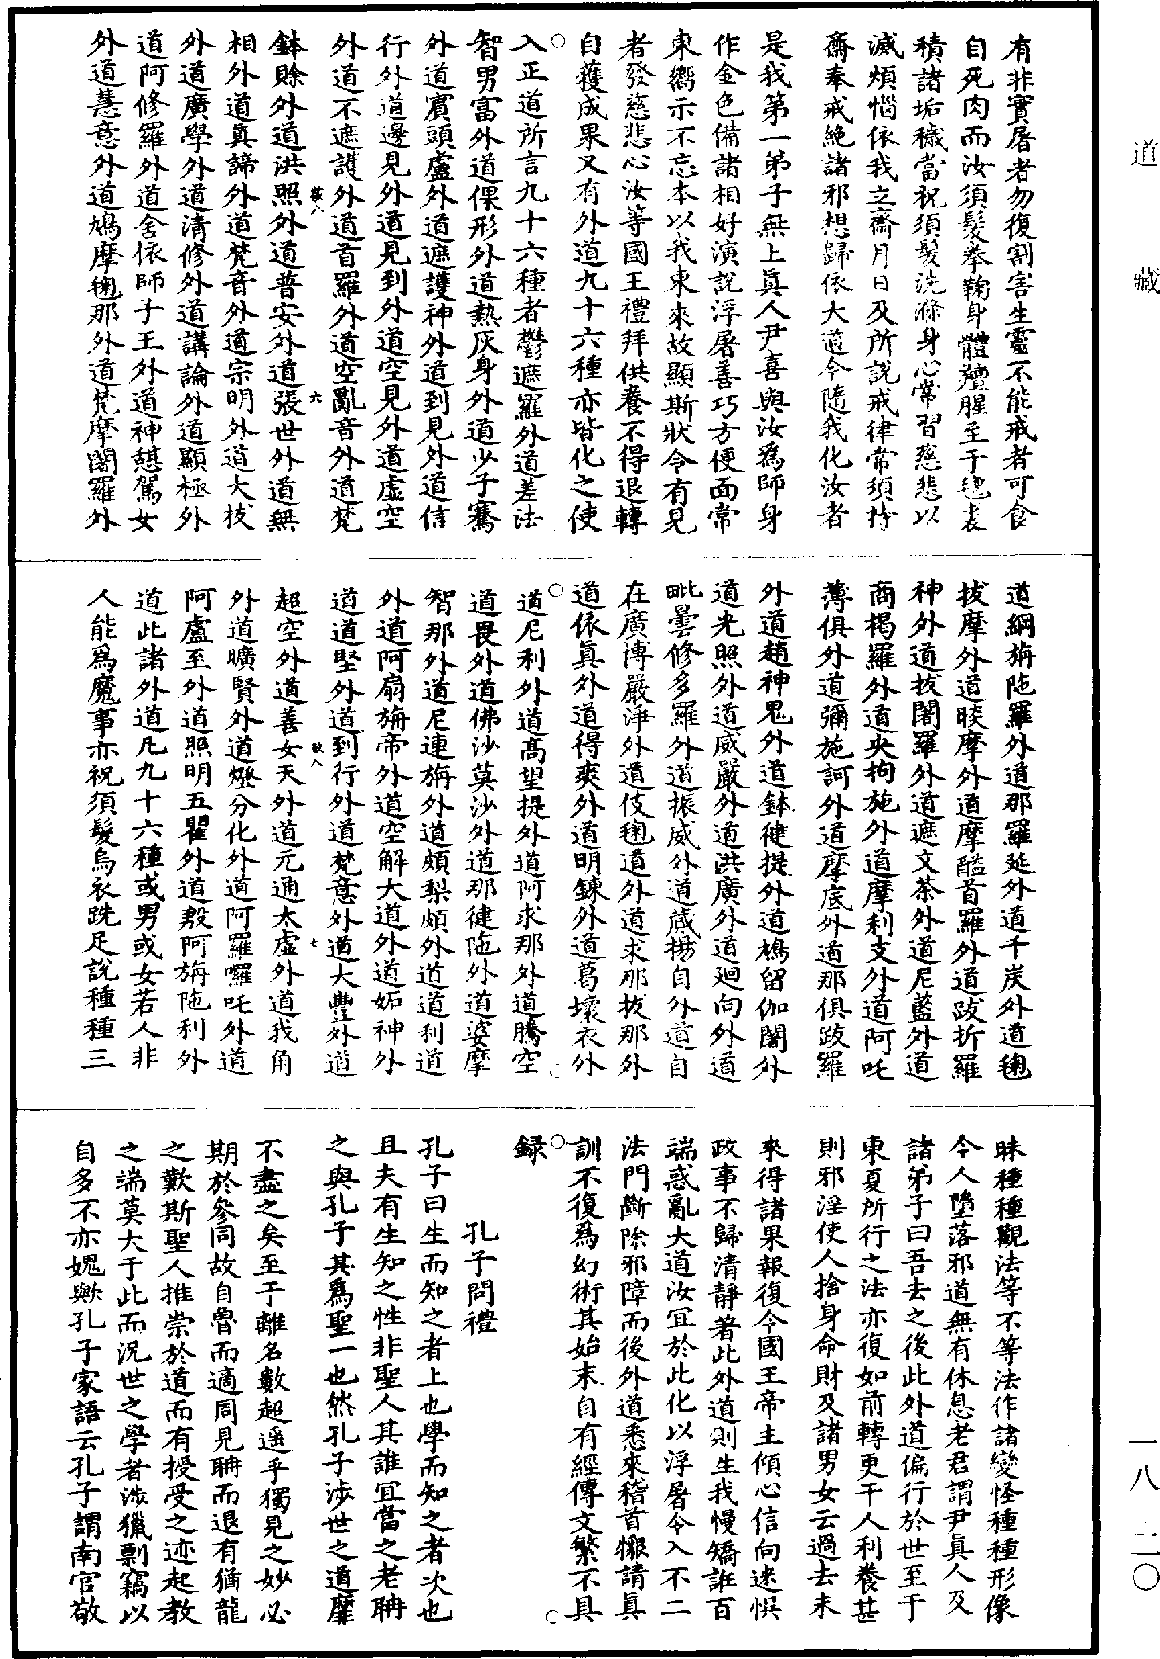 道藏
有非實屠者勿復割害生靈不能戒者可食
自死肉而汝須髮拳鞠身體羶腥至于氊裘
積諸垢穢當祝須髮洗滌身心常習慈悲以
滅煩惱依我之齋月日及所說戒律常須持
齋奉戒絶諸邪想歸依大道今隨我化汝者
是我第一弟子無上眞人尹喜與汝爲師身
作金色備諸相好演說浮屠善巧方便面常
東嚮示不忘本以我東來故顯斯狀令有見
者發慈悲心汝等國王禮拜供養不得退轉
自獲成果又有外道九十六種亦皆化之使
入正道所言九十六種者鬱遮羅外道差法
智男富外道倮形外道熱灰身外道少子騫
外道賓頭盧外道遮護神外道到見外道信
行外道邊見外道見到外道空見外道虛空
外道不遮護外道首羅外道空亂音外道梵
敬八
六
鉢賒外道洪照外道普安外道張世外道無
相外道眞諦外道梵音外道宗明外道大栰
外道廣學外道清修外道講論外道顯極外
道阿修羅外道舍依師子王外道神憇駕女
外道慧意外道鳩摩毱那外道梵摩闍羅外
道綱旃陁羅外道那羅延外道千炭外道毱
拔摩外道睒摩外道摩醯首羅外道跋折羅
神外道拔闍羅外道遮文茶外道尼藍外道
商揭羅外道央拘施外道摩利支外道阿吒
薄俱外道彌施訶外道摩底外道那俱跋羅
外道趙神鬼外道鉢健提外道鳩留伽闍外
道光照外道威嚴外道洪廣外道迴向外道
毗曇修多羅外道振威外道蒇揚自外道自
在廣博嚴淨外道伎毱道外道求那拔那外
道依眞外道得爽外道明鍊外道葛壞衣外
道尼利外道高望提外道阿求那外道騰空
道畏外道佛沙莫沙外道那健陁外道婆摩
智那外道尼連旃外道頗梨頗外道道利道
外道阿扇旃帝外道空解大道外道妬神外
道道堅外道到行外道梵意外道大豐外道
敬八
七
超空外道善女天外道元通太虛外道我角
外道曠賢外道燈分化外道阿羅囉吒外道
阿盧至外道照明五瞿外道毅阿旃陁利外
道此諸外道凡九十六種或男或女若人非
人能爲魔事亦祝須髮烏衣跣足說種種三
昧種種觀法等不等法作諸變怪種種形像
令人墮落邪道無有休息老君謂尹眞人及
諸弟子曰吾去之後此外道偏行於世至于
東夏所行之法亦復如前轉更干人利養甚
則邪淫使人捨身命財及諸男女云過去未
來得諸果報復令國王帝主傾心信向迷悞
政事不歸清靜著此外道則生我慢矯誑百
端惑亂大道汝宜於此化以浮屠令入不二
法門斷除邪障而後外道悉來稽首懺請眞
訓不復爲幻術其始末自有經傳文繁不具
録
孔子問禮
孔子曰生而知之者上也學而知之者次也
且夫有生知之性非聖人其誰宜當之老聃
之與孔子其爲聖一也然孔子涉世之道靡
不盡之矣至于離名數超遥乎獨見之妙必
期於參同故自魯而適周見聃而退有猶龍
之歎斯聖人推崇於道而有授受之迹起教
之端莫大于此而況世之學者涉獵剽竊以
自多不亦媿歟孔子家語云孔子謂南宮敬
一八 二〇